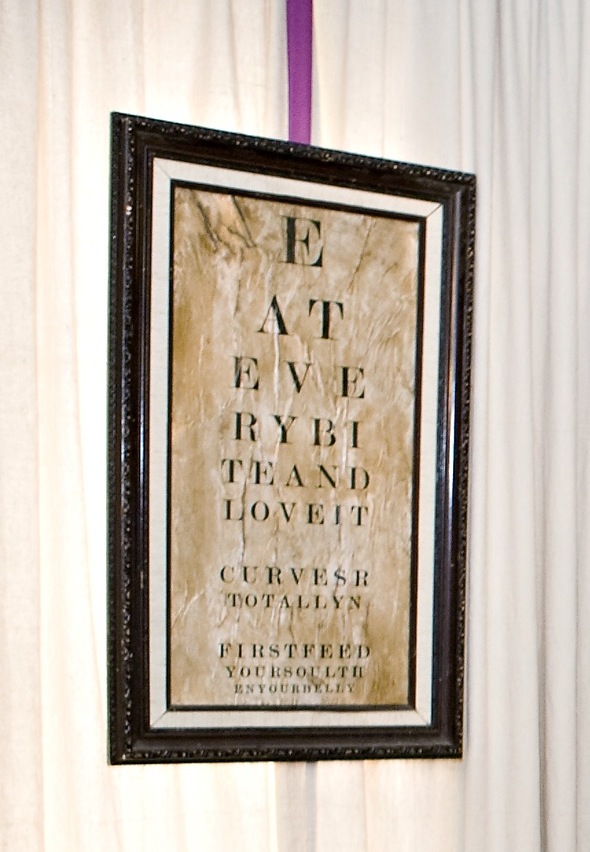 E
AT
EVE
RYBI
TEAND
LOVEIT
CURVESR
TOTALLYN
FIRSTFEED
YOURSOULTH
ENYOURBELLY